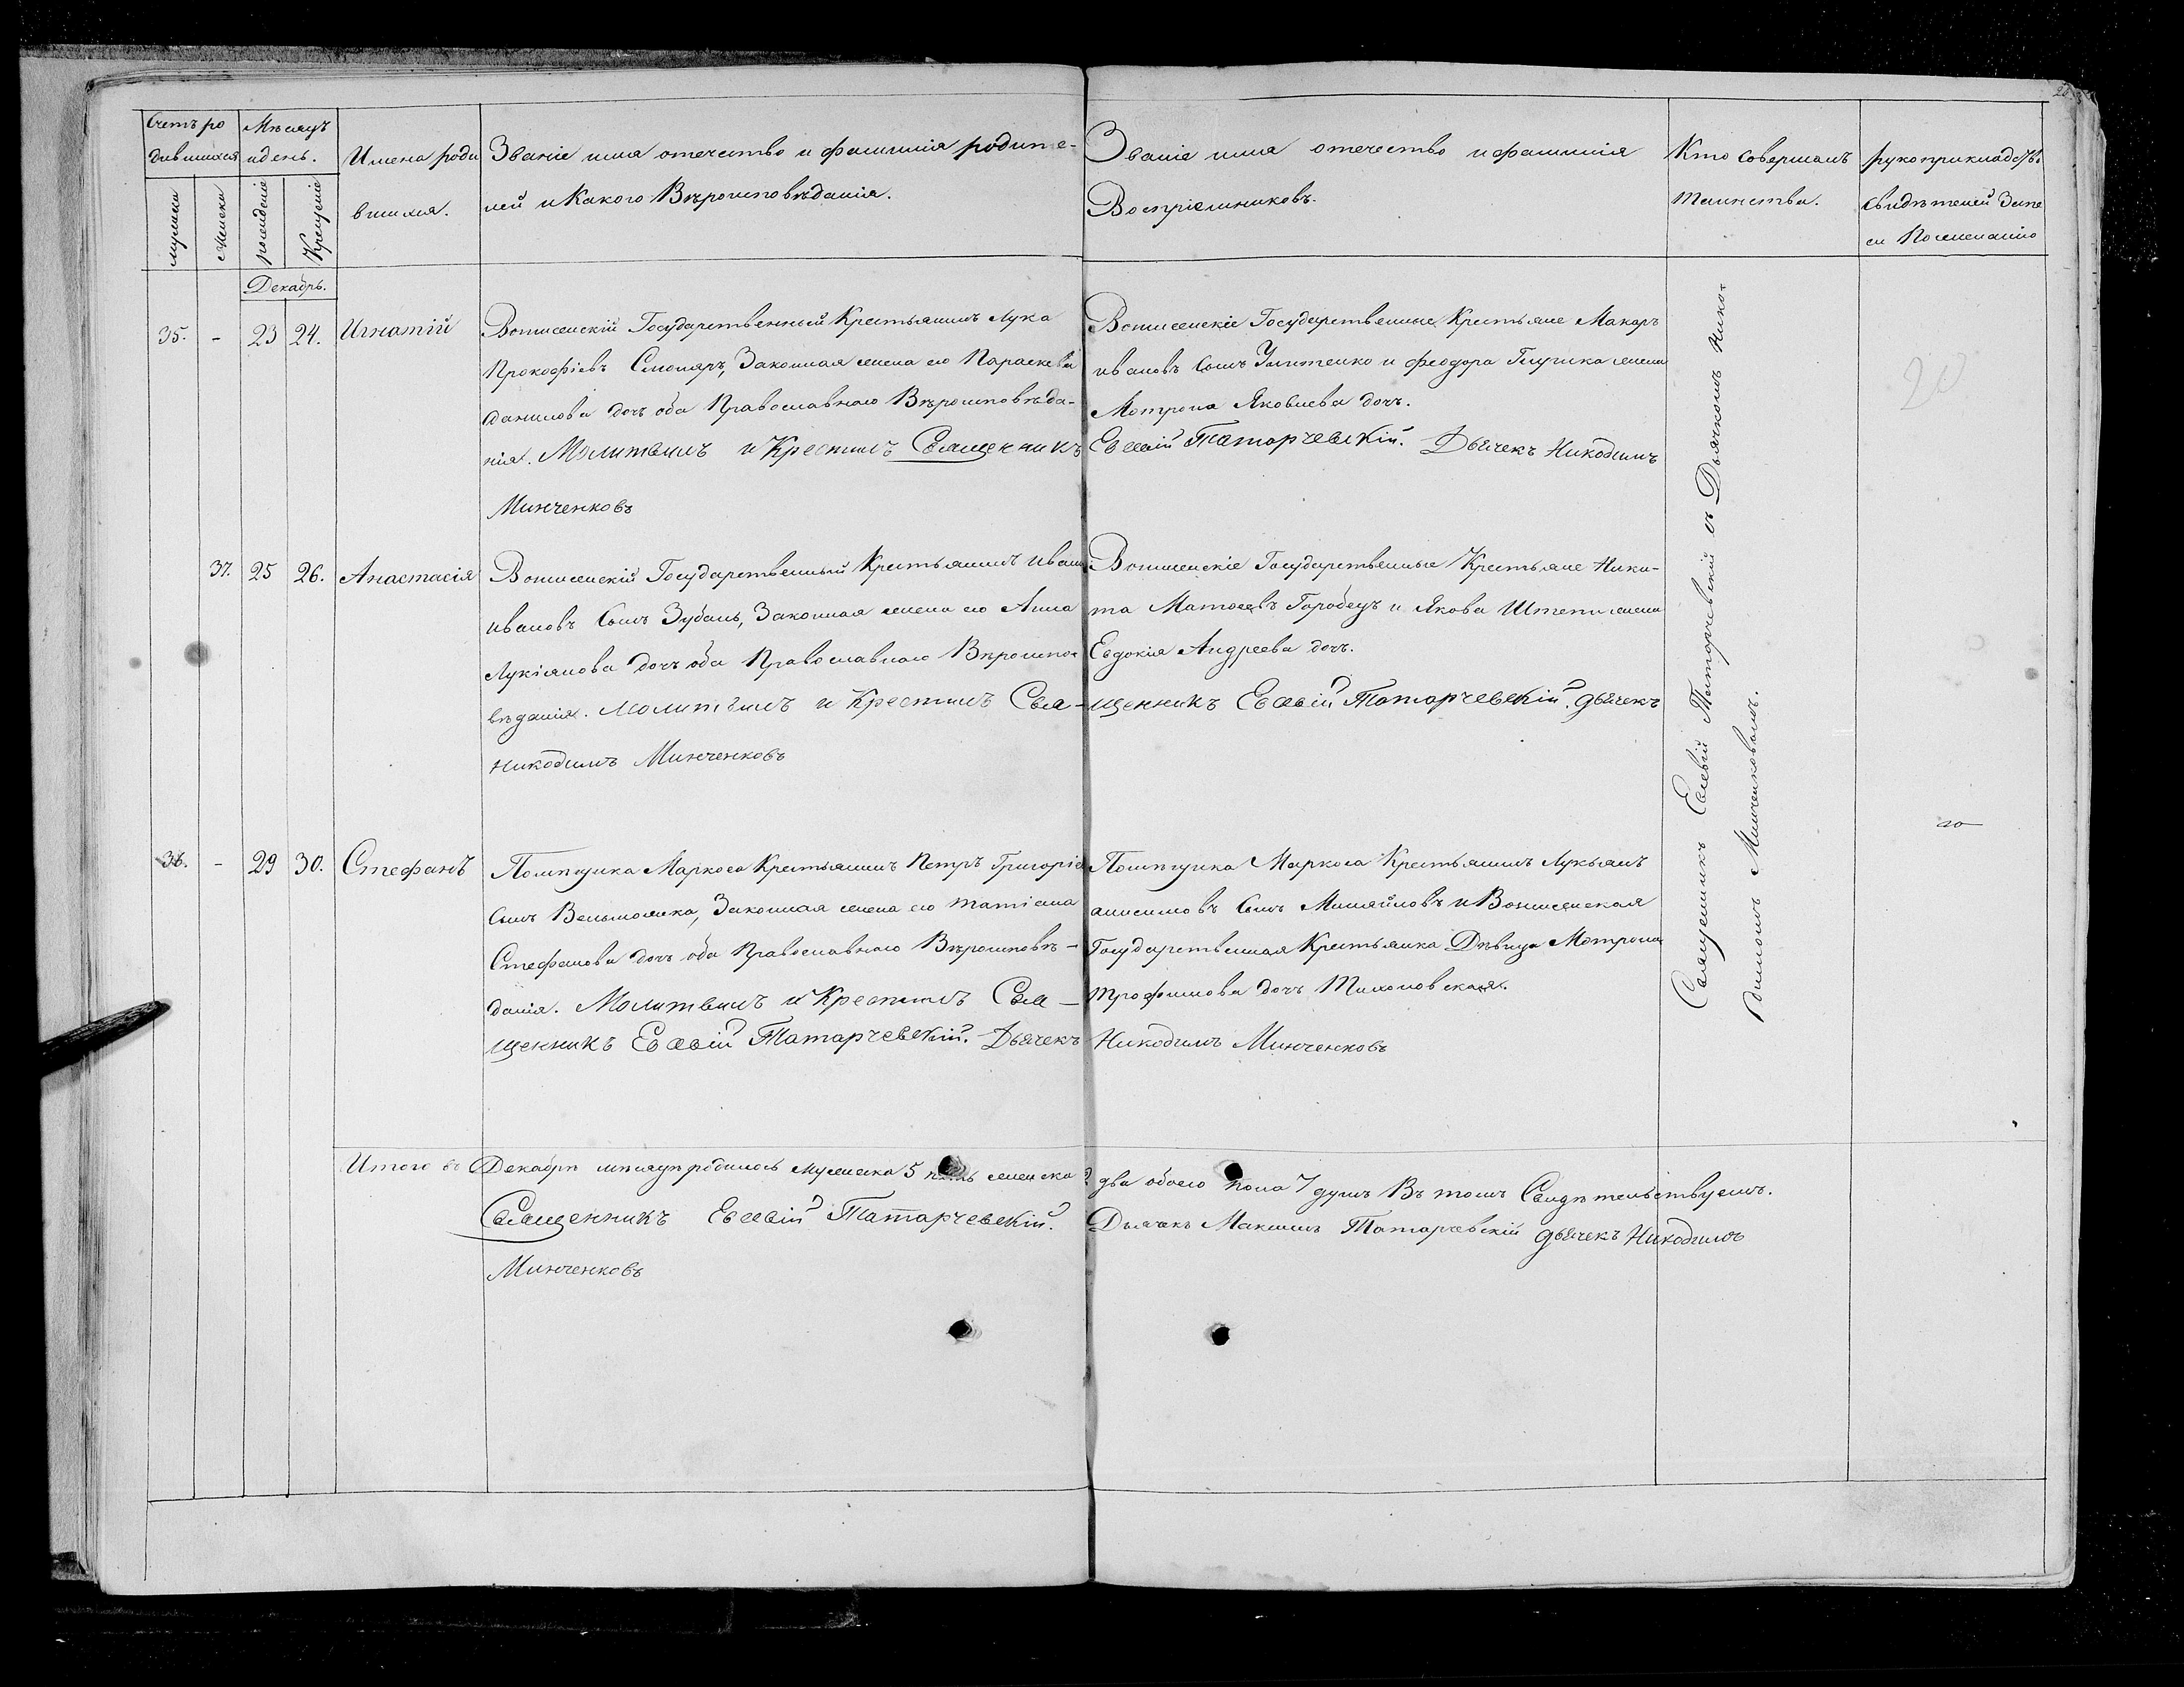 Счетъ ро
дившихся
Мѣсяцъ
и день.
мужеска
Женска
рожденіе
Крещеніе
Имена роди
вшихся.
Званіе имя отечество и фамилія родите-
лей и Какого Вѣроисповѣданія.
Званіе имя отечество и фамилія
Воспріемниковъ.
Кто совершалъ
таинства.
рукоприкладство
свидѣтелей запи
си По желанію
Декабрь.
35. - 23 24. Игнатій
Государственный Крестьянинъ Лука
Прокофіевъ Смоляръ, Законная жена его Параскева
Данилова дочь оба Православнаго Вѣроисповѣда-
нія. Молитвилъ и Крестилъ Священникъ
Минченковъ
Государственные Крестьяне Макаръ
Ивановъ сынъ и Феодора жена
Мотрона Яковлева дочь.
Евсевій Татарчевскій. Дьячекъ Никодимъ
37. 25 26. Анастасія
Государственный Крестьянинъ Иванъ
Ивановъ сынъ Зубань, Законная жена его Анна
Лукіянова дочь оба Православнаго Вѣроиспо-
вѣданія. Молитвилъ и Крестилъ Свя-
Никодимъ Минченковъ
Государственные Крестьяне Ники-
та Матѳеевъ Горобецъ и Якова жена
Евдокія Андреева дочь.
щенникъ Евсевій Татарчевскій. Дьячекъ
36. - 29 30. Стефанъ
Помѣщика Маркоса Крестьянинъ Петръ Григоріев
сынъ Законная жена его Татіана
Стефанова дочь оба Православнаго Вѣроисповѣ-
данія. Молитвилъ и Крестилъ Свя-
щенникъ Евсевій Татарчевскій. Дьячекъ
Помѣщика Маркоса Крестьянинъ Лукьянъ
Анисимовъ сынъ и
Государственная Крестьянка Дѣвица Мотрона
Трофимова дочь Тихоновская.
Никодимъ Минченковъ
Священникъ Евсевій Татарчевскій съ Дьячкомъ Нико-
димомъ Минченковымъ.
Итого въ Декабрѣ мѣсяцѣ родилось мужеска 5 пять женска 2 два обоего пола 7 душъ Въ томъ Свидѣтельствуемъ.
Священникъ Евсевій Татарчевскій. Дьячекъ Максимъ Татарчевскій Дьячекъ Никодимъ
Минченковъ